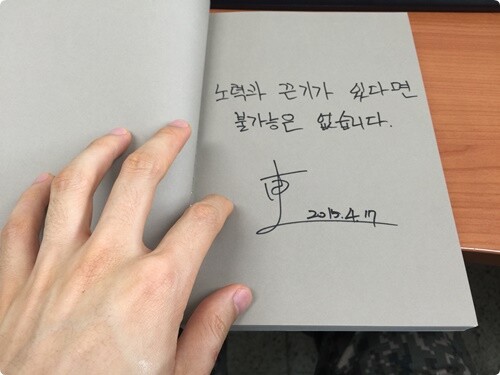 노력과 끈기가 있다면
불가능은 없습니다.
2015.4.17